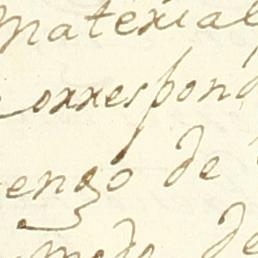 Material
Correspond
engo de
modo de